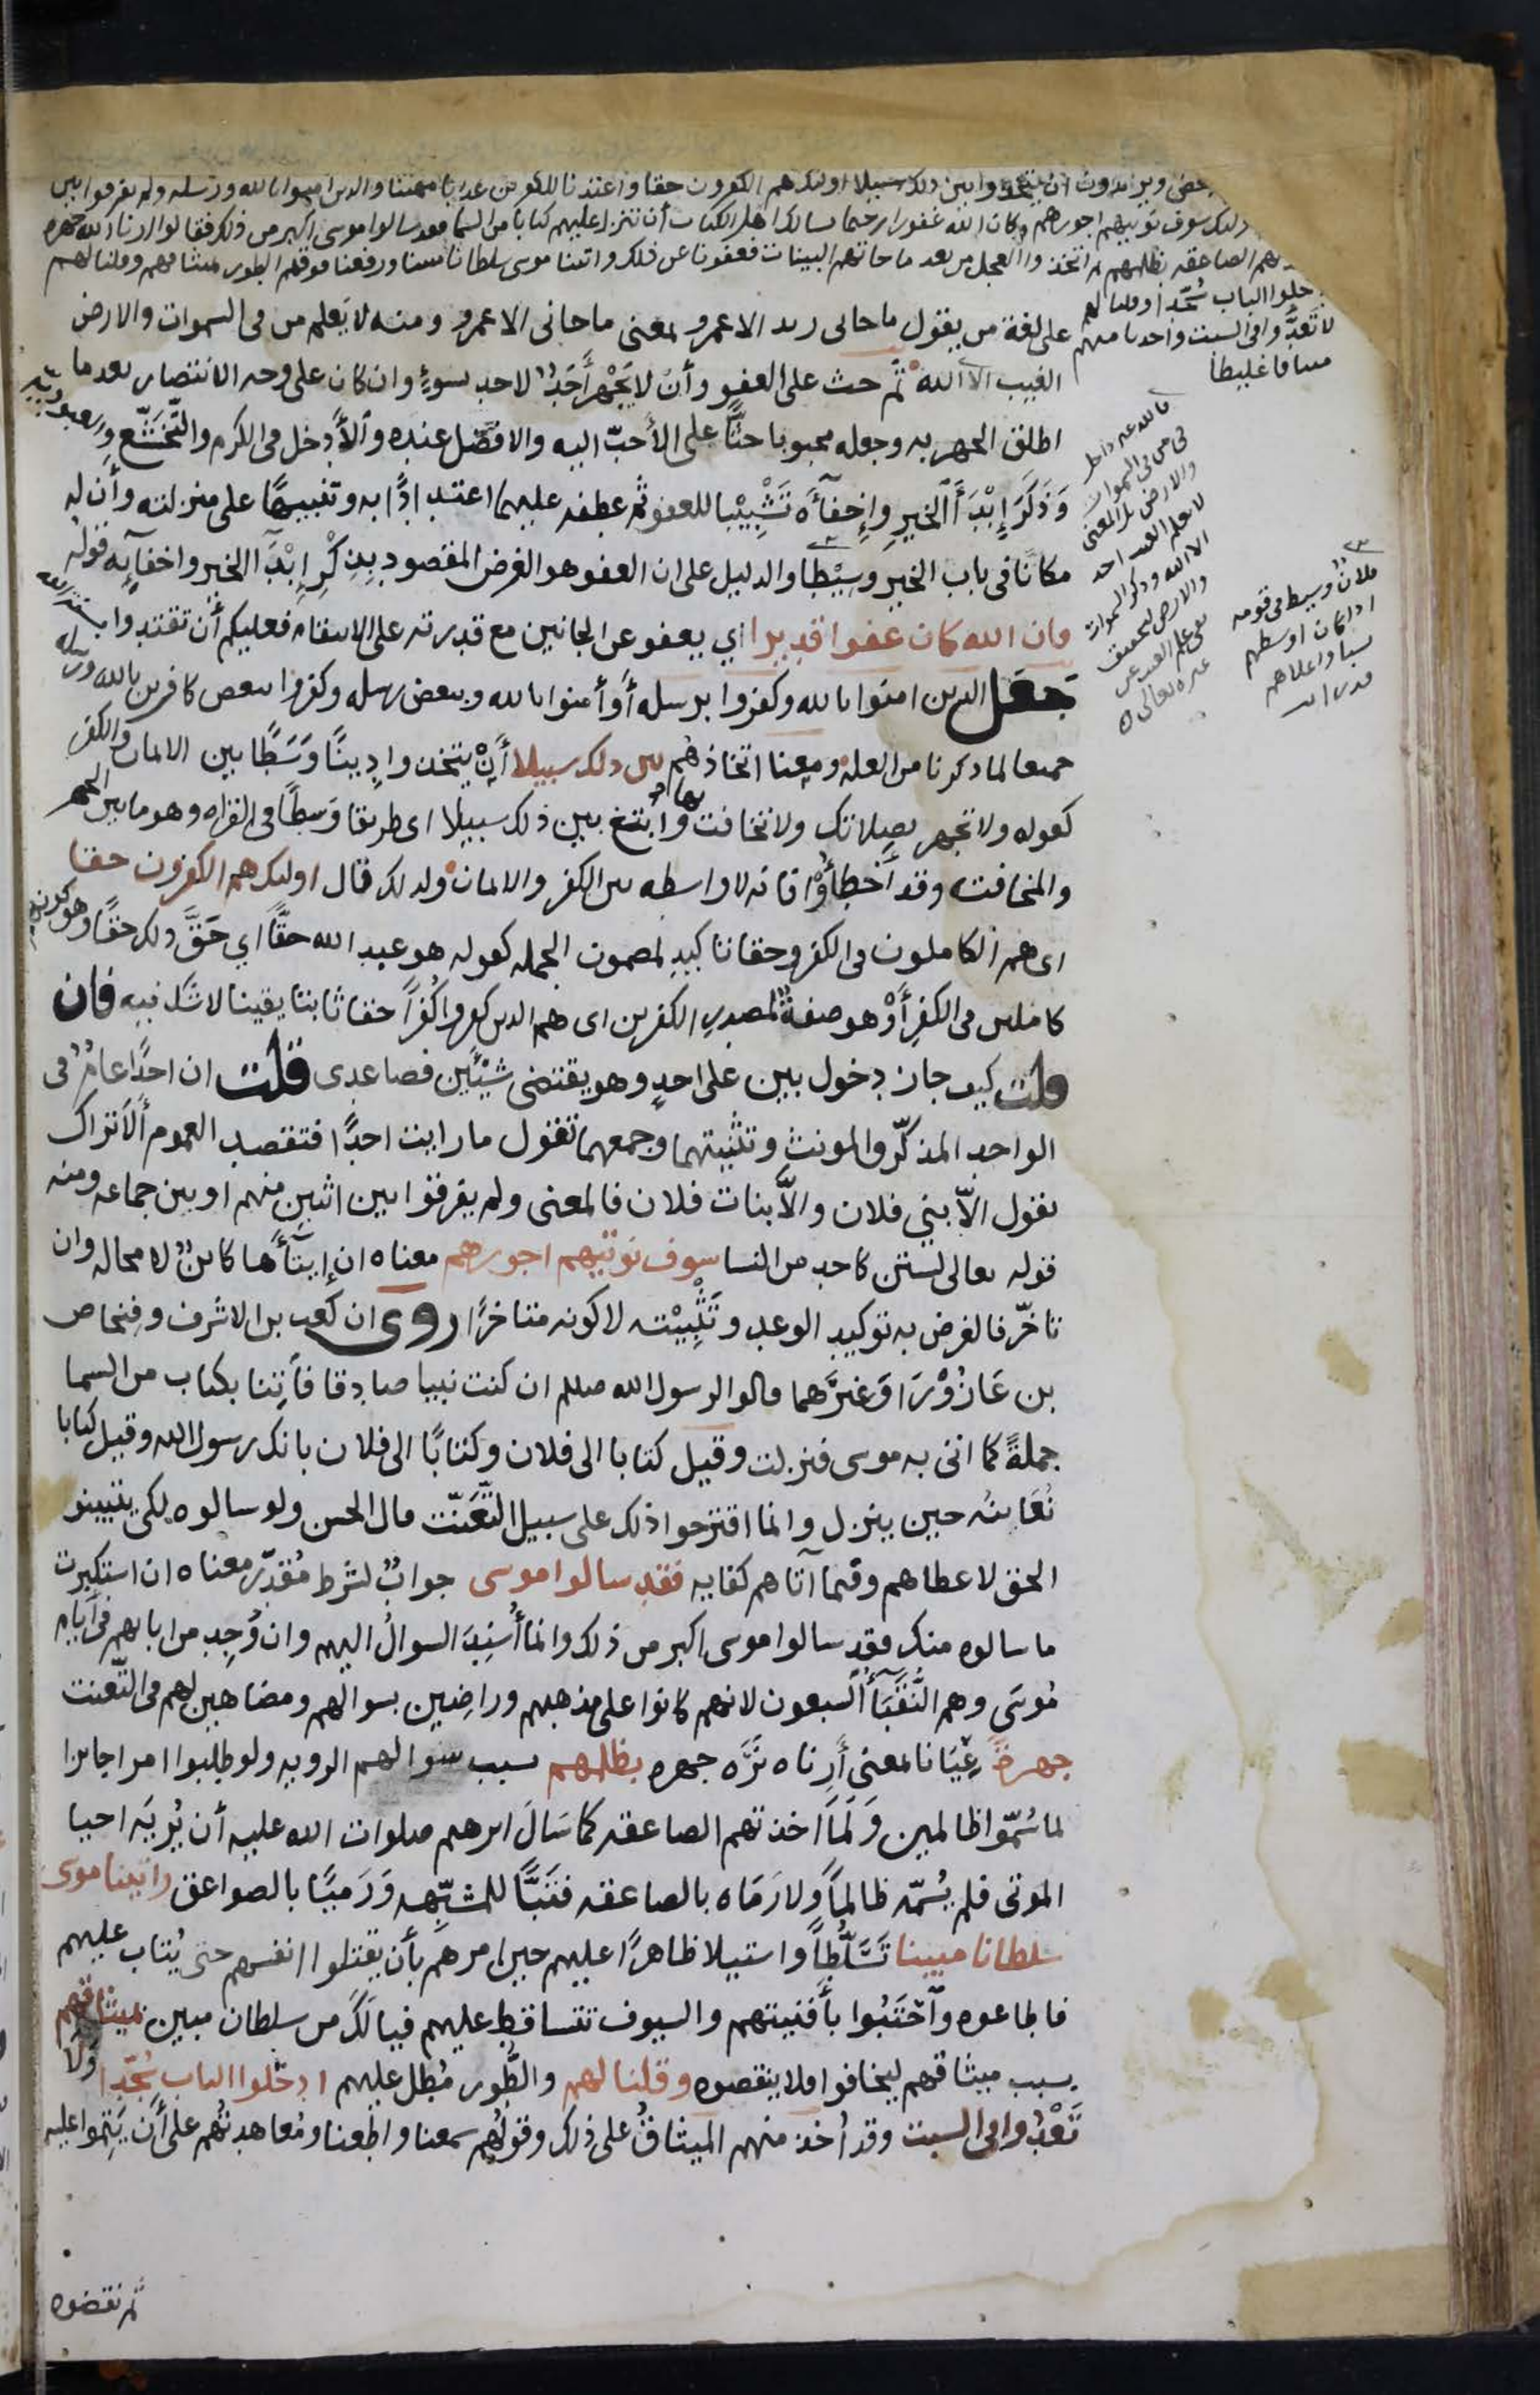 بعض ويريدون ان يتخذوا بين ذلك سبيلا اولئك هم الكفرون حقا واعتدنا للكفرين عذابا مهينا والدين امنوا بالله ورسله ولم يفرقوا بين
اولئك سوف نوتيهم اجورهم وكان الله غفورا رحيما يسالك اهل الكتاب أن تنزل عليهم كتابا من السما فقد سالوا موسى اكبر من ذلك فقالوا ارنا الله جهره
الصاعقه بظلمهم ثم اتخذوا العجل من بعد ما جاتهم البينات فعفونا عن ذلك واتينا موسى سلطانا مبينا ورفعنا فوقهم الطور بميثاقهم وقلنا لهم
ادخلوا الباب سُجّدا وقلنا لهم
لا تَعْدُوا فى السبت واخدنا منهم
ميثاقا غليظا
على لغة من يقول ما جانى زيد الا عمرو بمعنى ما جانى الا عمرو ومنه لا يَعلم من فى السموات والارض
الغيب الا الله ثم حث على العفو وأن لا يَجْهَر أَحَدٌ لاحد بسوءٍ وان كان على وجه الانتصار بعد ما
اطلق الجهر به وجعله محبوبا حثًّا على الأحبّ اليه والافضل عنده والأدخل فى الكرم والتَّخَشُّع والعبوديه
وَذَكَرَ إِبْدَآَ الخيرِ وإخفآَءه تَشْبِيْبا للعفو ثم عطفه عليهما اعتدادًا به وتنبيهًا على منزلته وأن له
مكانًا فى باب الخير وسِيْطا والدليل على ان العفو هو الغرض المقصود بِذِكْرِ إِبْدَآَ الخير واخفآيه قوله
فان الله كان عفوا قديرا اي يعفو عن الجانين مع قدرته على الانتقام فعليكم أن تقتدوا بسنة الله
جعل الدين امنوا بالله وكفروا برسله أَو أمنوا بالله وببعض رسله وكفروا ببعض كافرين بالله ورسله
جميعا لما دكرنا من العله ومعنا اتخاذهُم بين دلك سبيلا أَن يتخذوا دِينًا وَسَطًا بين الايمان والكفر
كقوله ولا تجهر بصلاتك ولا تخافت بها وابتغ بين ذلك سبيلا اى طريقا وَسطًا فى القراه وهو ما بين الجهر
والمخافته وقد أَخطأُوْا فانه لا واسطه بين الكفر والايمان ولذلك قال اولئك هم الكفرون حقا
اى هم الكاملون فى الكفر وحقا تاكيد لمضمون الجمله كقوله هو عبد الله حقًّا اي حَقَّ ذلك حقًّا وهو كونهم
كاملين فى الكفر أَوْ هو صفةٌ لمصدر الكفرين اى هم الدين كفروا كُفرًا حقا ثابتا يقينا لا شك فيه فان
قلت كيف جاز دخول بين على احدٍ وهو يقتضى شيْئَين فصاعدى قلت ان احدًا عامٌّ فى
الواحد المذكّر والمونث وتثنيتهما وجمعهما تقول ما رايت احدًا فتقصد العموم أَلَا تراك
تقول الّا بني فلان والّا بنات فلان فالمعنى ولم يفرقوا بين اثنين منهم او بين جماعه ومنه
قوله تعالى لستن كاحد من النسا سوف نوتيهم اجورهم معناه ان إِيتآَءها كاينٌ لا محاله وان
تاخّر فالغرض به توكيد الوعد وتَثْبِيْته لا كونه متاخرًا روى ان كعب بن الاشرف وفنحاص
بن عَازُوْرَا وَغيرَهما قالوا لرسول الله صللم ان كنت نبيا صادقا فَأتِنا بكتاب من السما
جملةً كما اتى به موسى فنزلت وقيل كتابا الى فلان وكتابًا الى فلان بانك رسول الله وقيل كتابا
نُعَاينُه حين ينزل وانما اقترحوا ذلك على سبيل التَّعَنّت قال الحسن ولو سالوه لكى يتبينو
الحق لاعطاهم وفيما آتاهم كفايه فقد سالوا موسى جوابٌ لشرط مُقدّر معناه ان استكبرت
ما سالوه منك فقد سالوا موسى اكبر من ذلك وانما أُسْنِدَ السوالُ اليهم وان وُجِد من ابايهم فى ايَّام
مُوسَى وهم النُّقَبَآءُ السبعون لانهم كانوا على مذهبهم وراضِين بسوالهم ومضاهين لهم فى التَّعنت
جهرةً عِيَانا بمعنى أَرِناه نَرَه جهره بظلمهم بسبب سوالهم الرويه ولو طلبوا امرا جايزا
لما سُمّوا ظالمين وَلَمَا اخذتهم الصاعقه كما سَالَ ابرهيم صلوات الله عليه أن يُريَه احيا
الموتى فلم يُسَمّه ظالمًا ولا رَمَاه بالصاعقه فتَبًّا للمشبِّهه وَرَميًا بالصواعق واتينا موسى
سلطانا مبينا تَسَلُّطًا واستيلا ظاهرًا عليهم حين امرهم بأن يقتلوا انفسهم حتى يُتاب عليهم
فاطاعوه واحْتَبُوا بأفنيتهم والسيوف تتساقط عليهم فيالَكَ من سلطان مبين بميثاقهم
بسبب ميثاقهم ليخافوا فلا ينقضوه وقلنا لهم والطُّور مُطل عليهم ادخلوا الباب سُجّدا ولا
تَعْدُوا فى السبت وقد اُخذ منهم الميثاقُ على ذلك وقولُهم سمعنا واطعنا ومُعاهدتُهم على أن يَتِمّوا عليه
ثم نقضوه
فى من فى السموات
والارض
لا يعلم الغيب احد
الا الله وذكر السموات
والارض
علم الغيب عن
غيره تعالى
فلانٌ وسيط فى قومه
اذا كان اوسطهم
نسبا واعلاهم